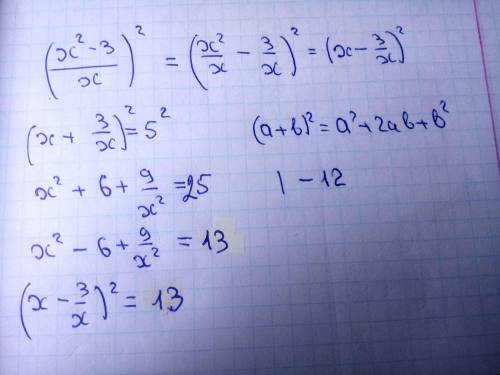 ((x² - 3)/x)² = (x²/x - 3/x)² = (x - 3/x)²
(x + 3/x)² = 5²    (a+b)² = a² + 2ab + b²
x² + 6 + 9/x² = 25    | - 12
x² - 6 + 9/x² = 13
(x - 3/x)² = 13